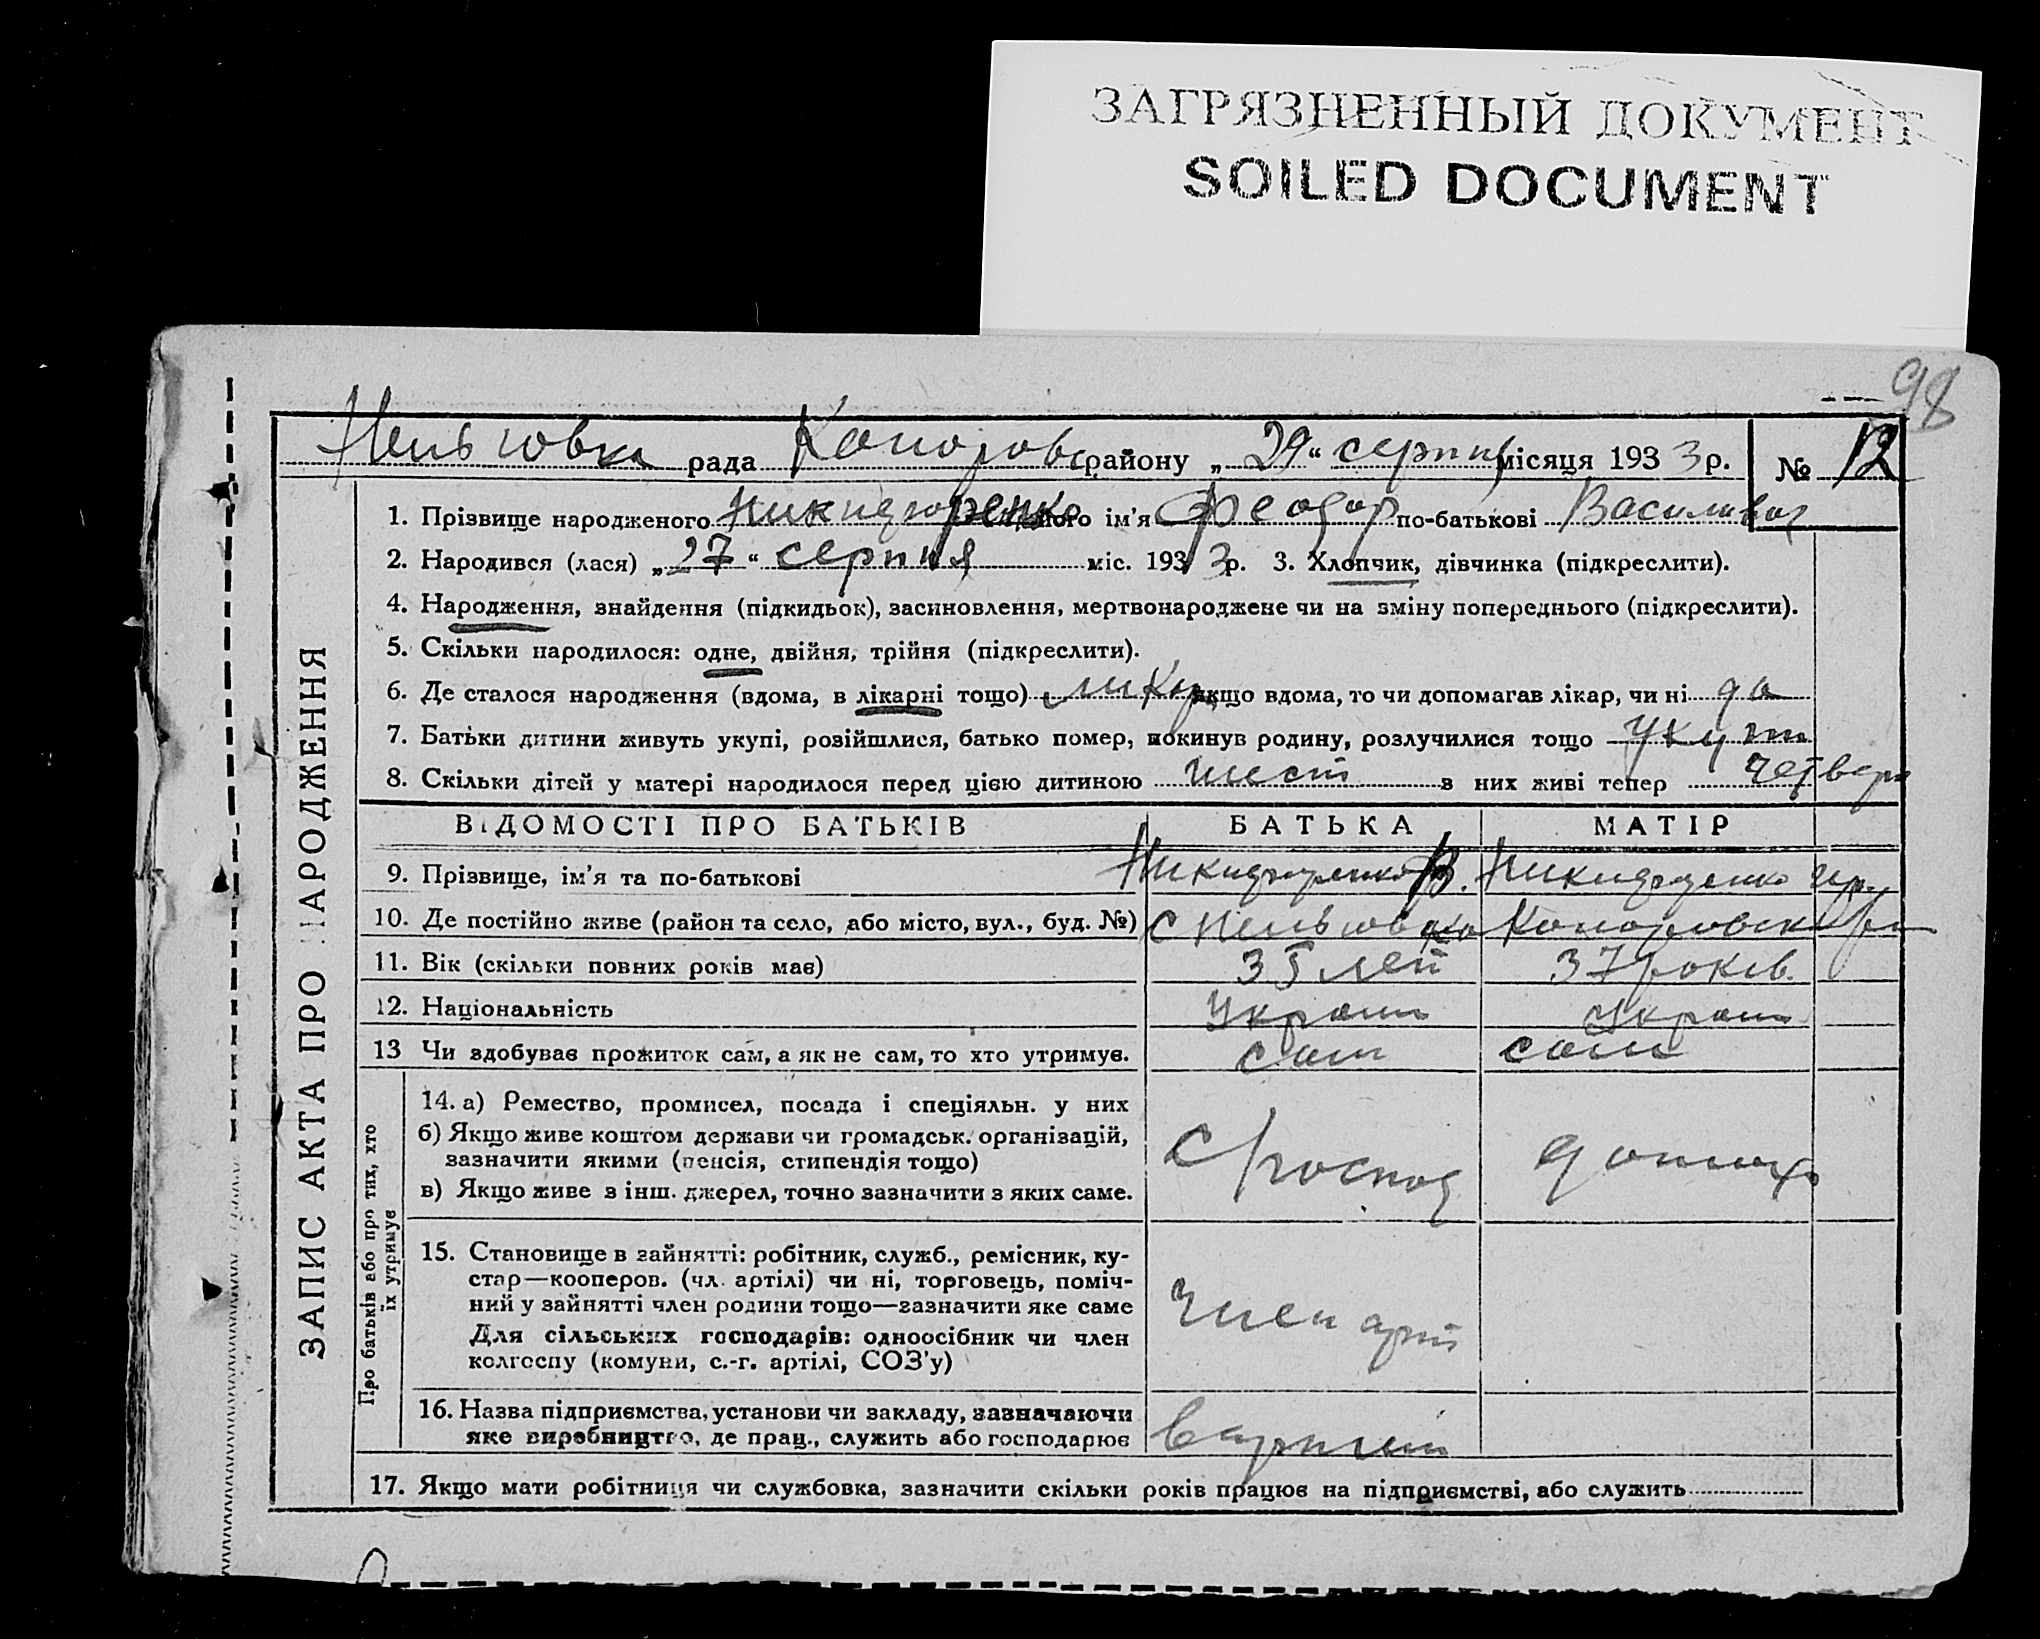 ЗАГРЯЗНЕННЫЙ ДОКУМЕНТ
SOILED DOCUMENT
98
рада району „29“ серпня місяця 1933 р. № 12
ЗАПИС АКТА ПРО НАРОДЖЕННЯ
1. Прізвище народженого ім'я Феодор по-батькові
2. Народився (лася) „27“ серпня міс. 1933 р. 3. Хлопчик, дівчинка (підкреслити).
4. Народження, знайдення (підкидьок), засиновлення, мертвонароджене чи на зміну попереднього (підкреслити).
5. Скільки народилося: одне, двійня, трійня (підкреслити).
6. Де сталося народження (вдома, в лікарні тощо) якщо вдома, то чи допомагав лікар, чи ні да
7. Батьки дитини живуть укупі, розійшлися, батько помер, покинув родину, розлучилися тощо укупі
8. Скільки дітей у матері народилося перед цією дитиною шест в них живі тепер четверо
ВІДОМОСТІ ПРО БАТЬКІВ БАТЬКА МАТІР
9. Прізвище, ім'я та по-батькові
10. Де постійно живе (район та село, або місто, вул., буд. №) с
11. Вік (скільки повних років має) 35 лет 37 років.
12. Національність Украин Украин
13 Чи здобуває прожиток сам, а як не сам, то хто утримує. сам сам
Про батьків або про тих, хто
їх утримує
14. а) Ремество, промисел, посада і спеціяльн. у них
б) Якщо живе коштом держави чи громадськ. організацій,
зазначити якими (пенсія, стипендія тощо)
в) Якщо живе з інш. джерел, точно зазначити з яких саме.
с/господ домох
15. Становище в зайнятті: робітник, служб., ремісник, ку-
стар—кооперов. (чл. артілі) чи ні, торговець, поміч-
ний у зайнятті член родини тощо—зазначити яке саме
Для сільських господарів: одноосібник чи член
колгоспу (комуни, с.-г. артілі, СОЗ'у)
член арт
16. Назва підприємства, установи чи закладу, зазначаючи
яке виробництво, де прац., служить або господарює
в артелі
17. Якщо мати робітниця чи службовка, зазначити скільки років працює на підприємстві, або служить